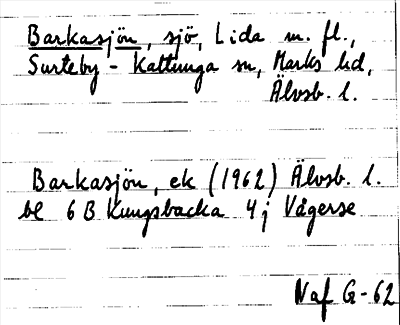 Barkasjön, sjö, Lida m. fl.,
Surteby - Kattunga sn, Marks hd,
Älvsb. l.
Barkasjön, ek (1962) Älvsb. l.
bl 6 B Kungsbacka 4 j Vågerse
Naf G-62